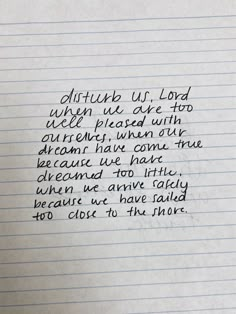 disturb us, Lord
when we are too
well pleased with
ourselves, when our
dreams have come true
because we have
dreamed too little,
when we arrive safely
because we have sailed
too close to the shore.